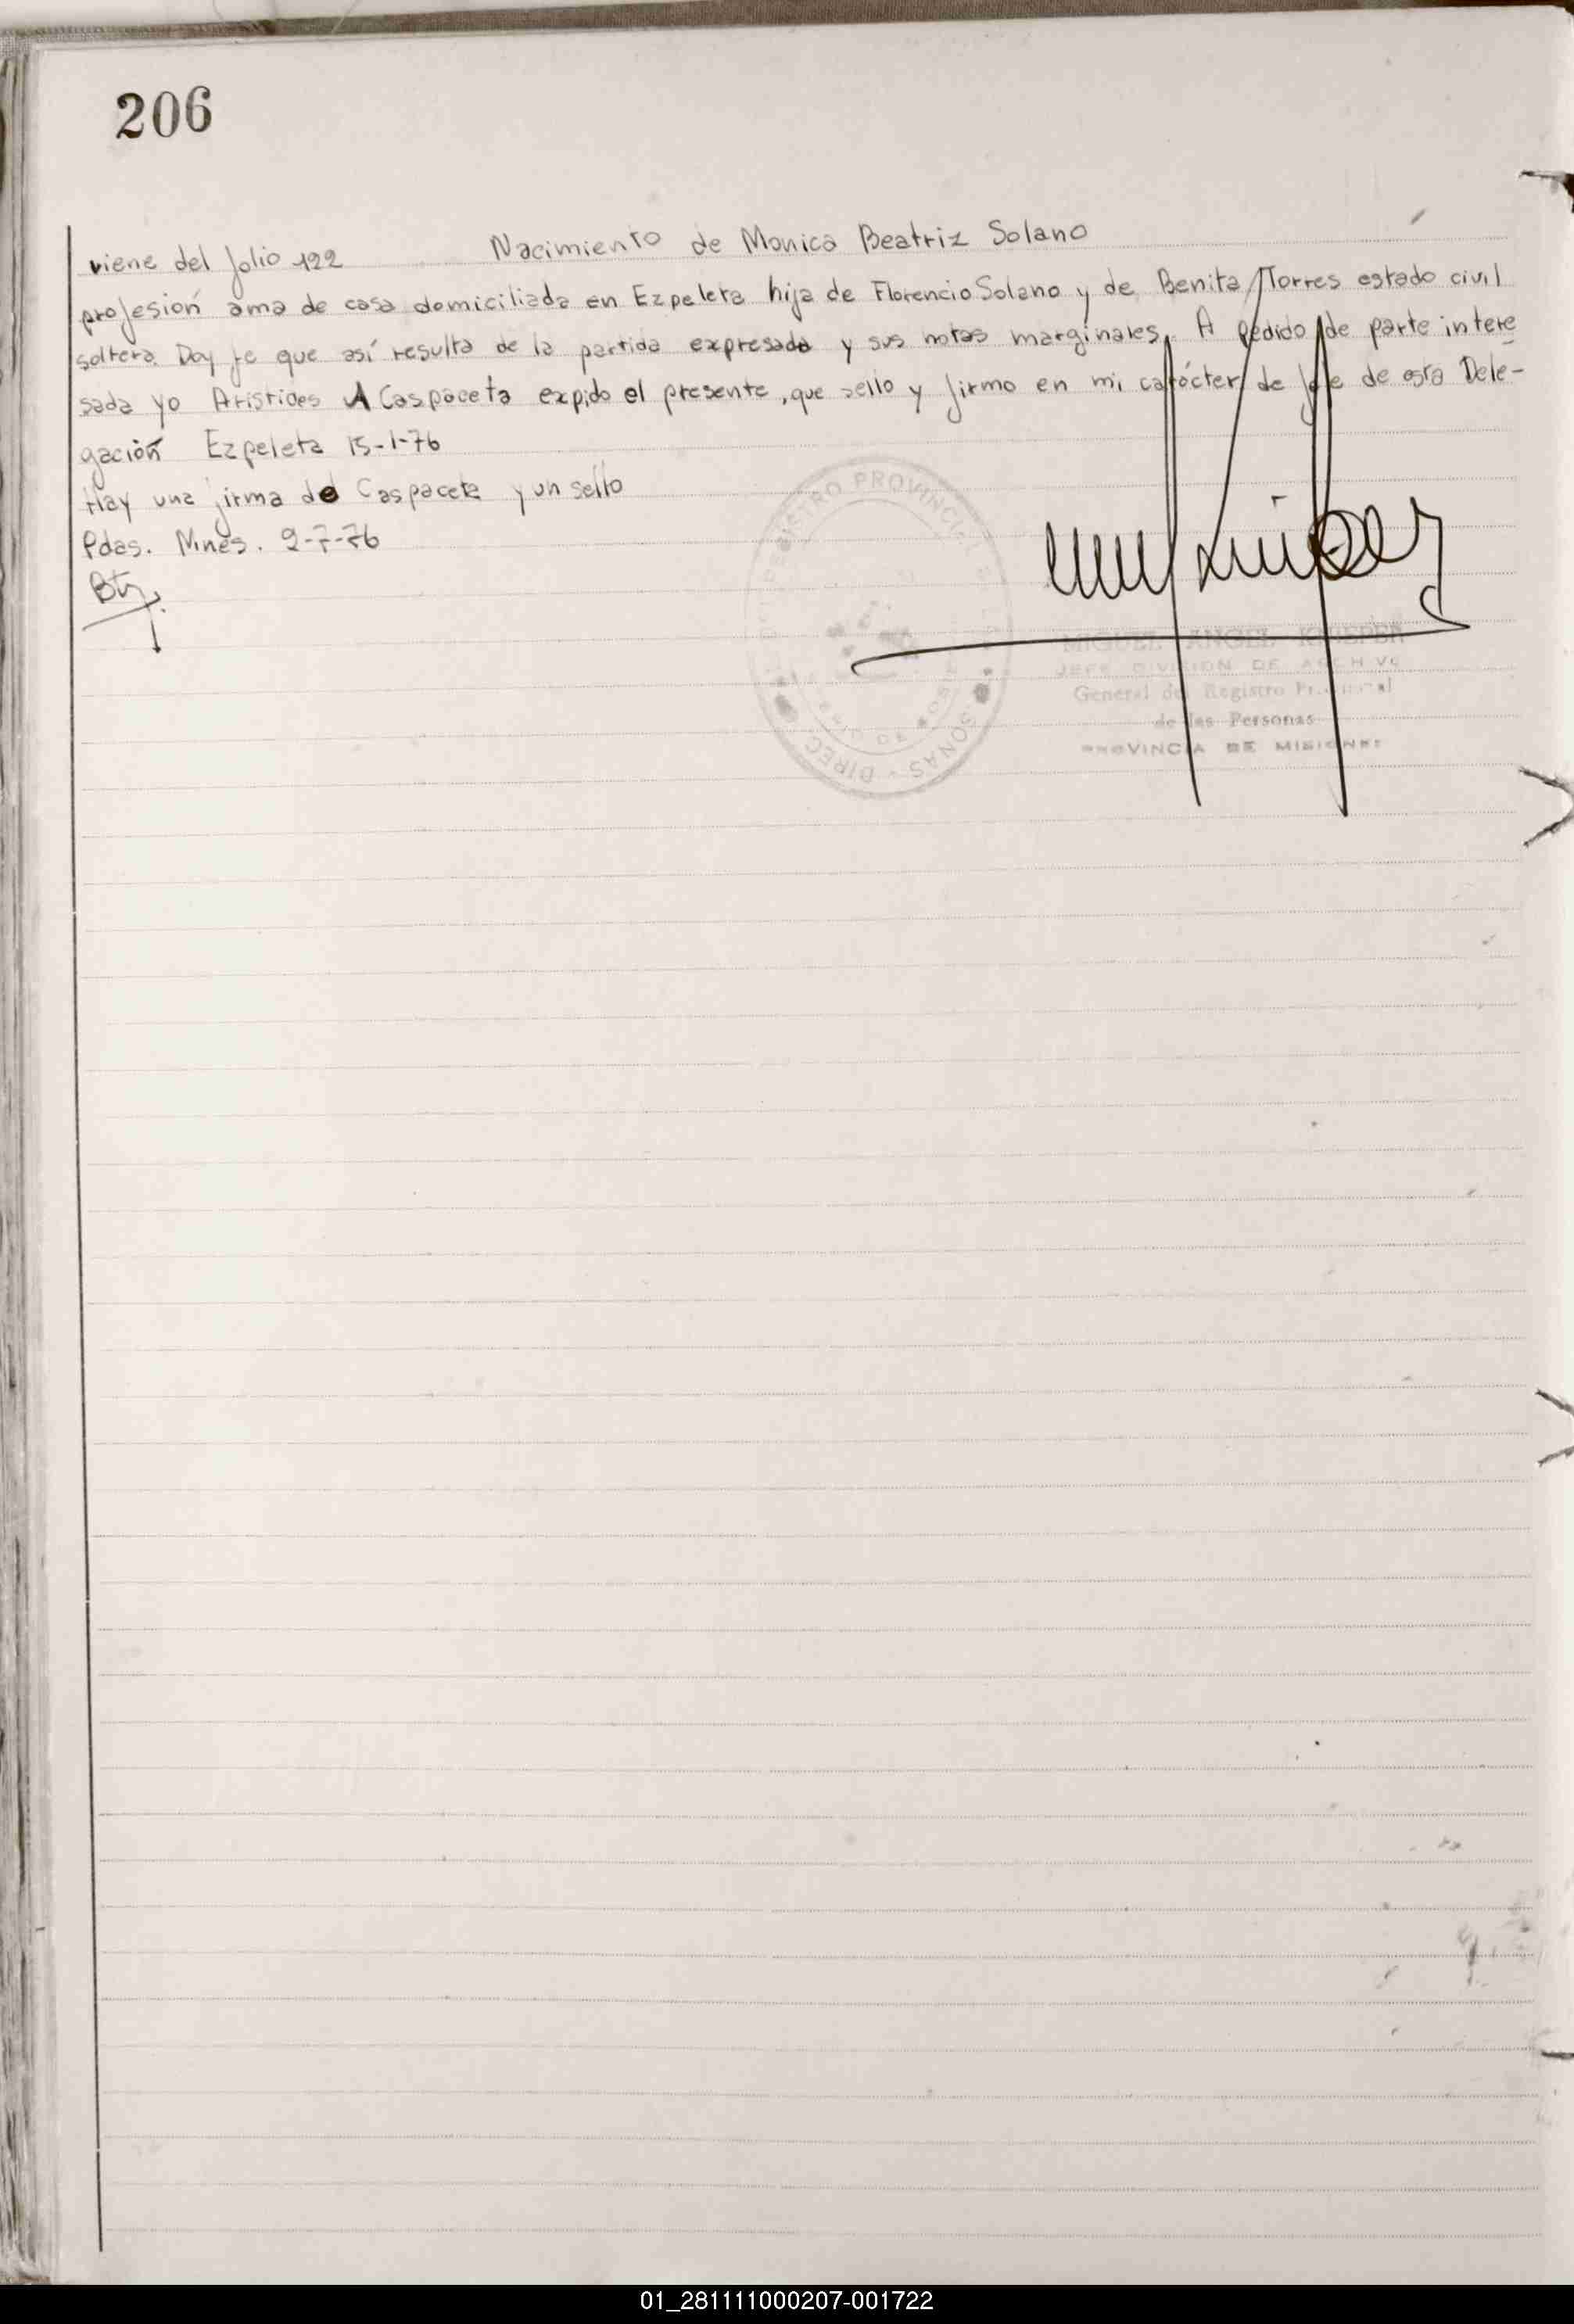 206
viene del folio 122 Nacimiento de Monica Beatriz Solano
profesión ama de casa domiciliada en Ezpeleta hija de Florencio Solano y de Benita Torres estado civil
soltera. Doy fe que así resulta de la partida expresada y sus notas marginales. A pedido de parte intere
sada yo Aristides A Caspaceta expido el presente, que sello y firmo en mi carácter de Jefe de esta Dele-
gación Ezpeleta 15-1-76
Hay una firma de Caspaceta y un sello
Pdas. Mnes. 2-7-76
REGISTRO PROVINCIAL
SONAS - DIREC
MIGUEL ANGEL
JEFE DIVISION DE ARCHIVO
General del Registro Provincial
de las Personas
PROVINCIA DE MISIONES
01_281111000207-001722